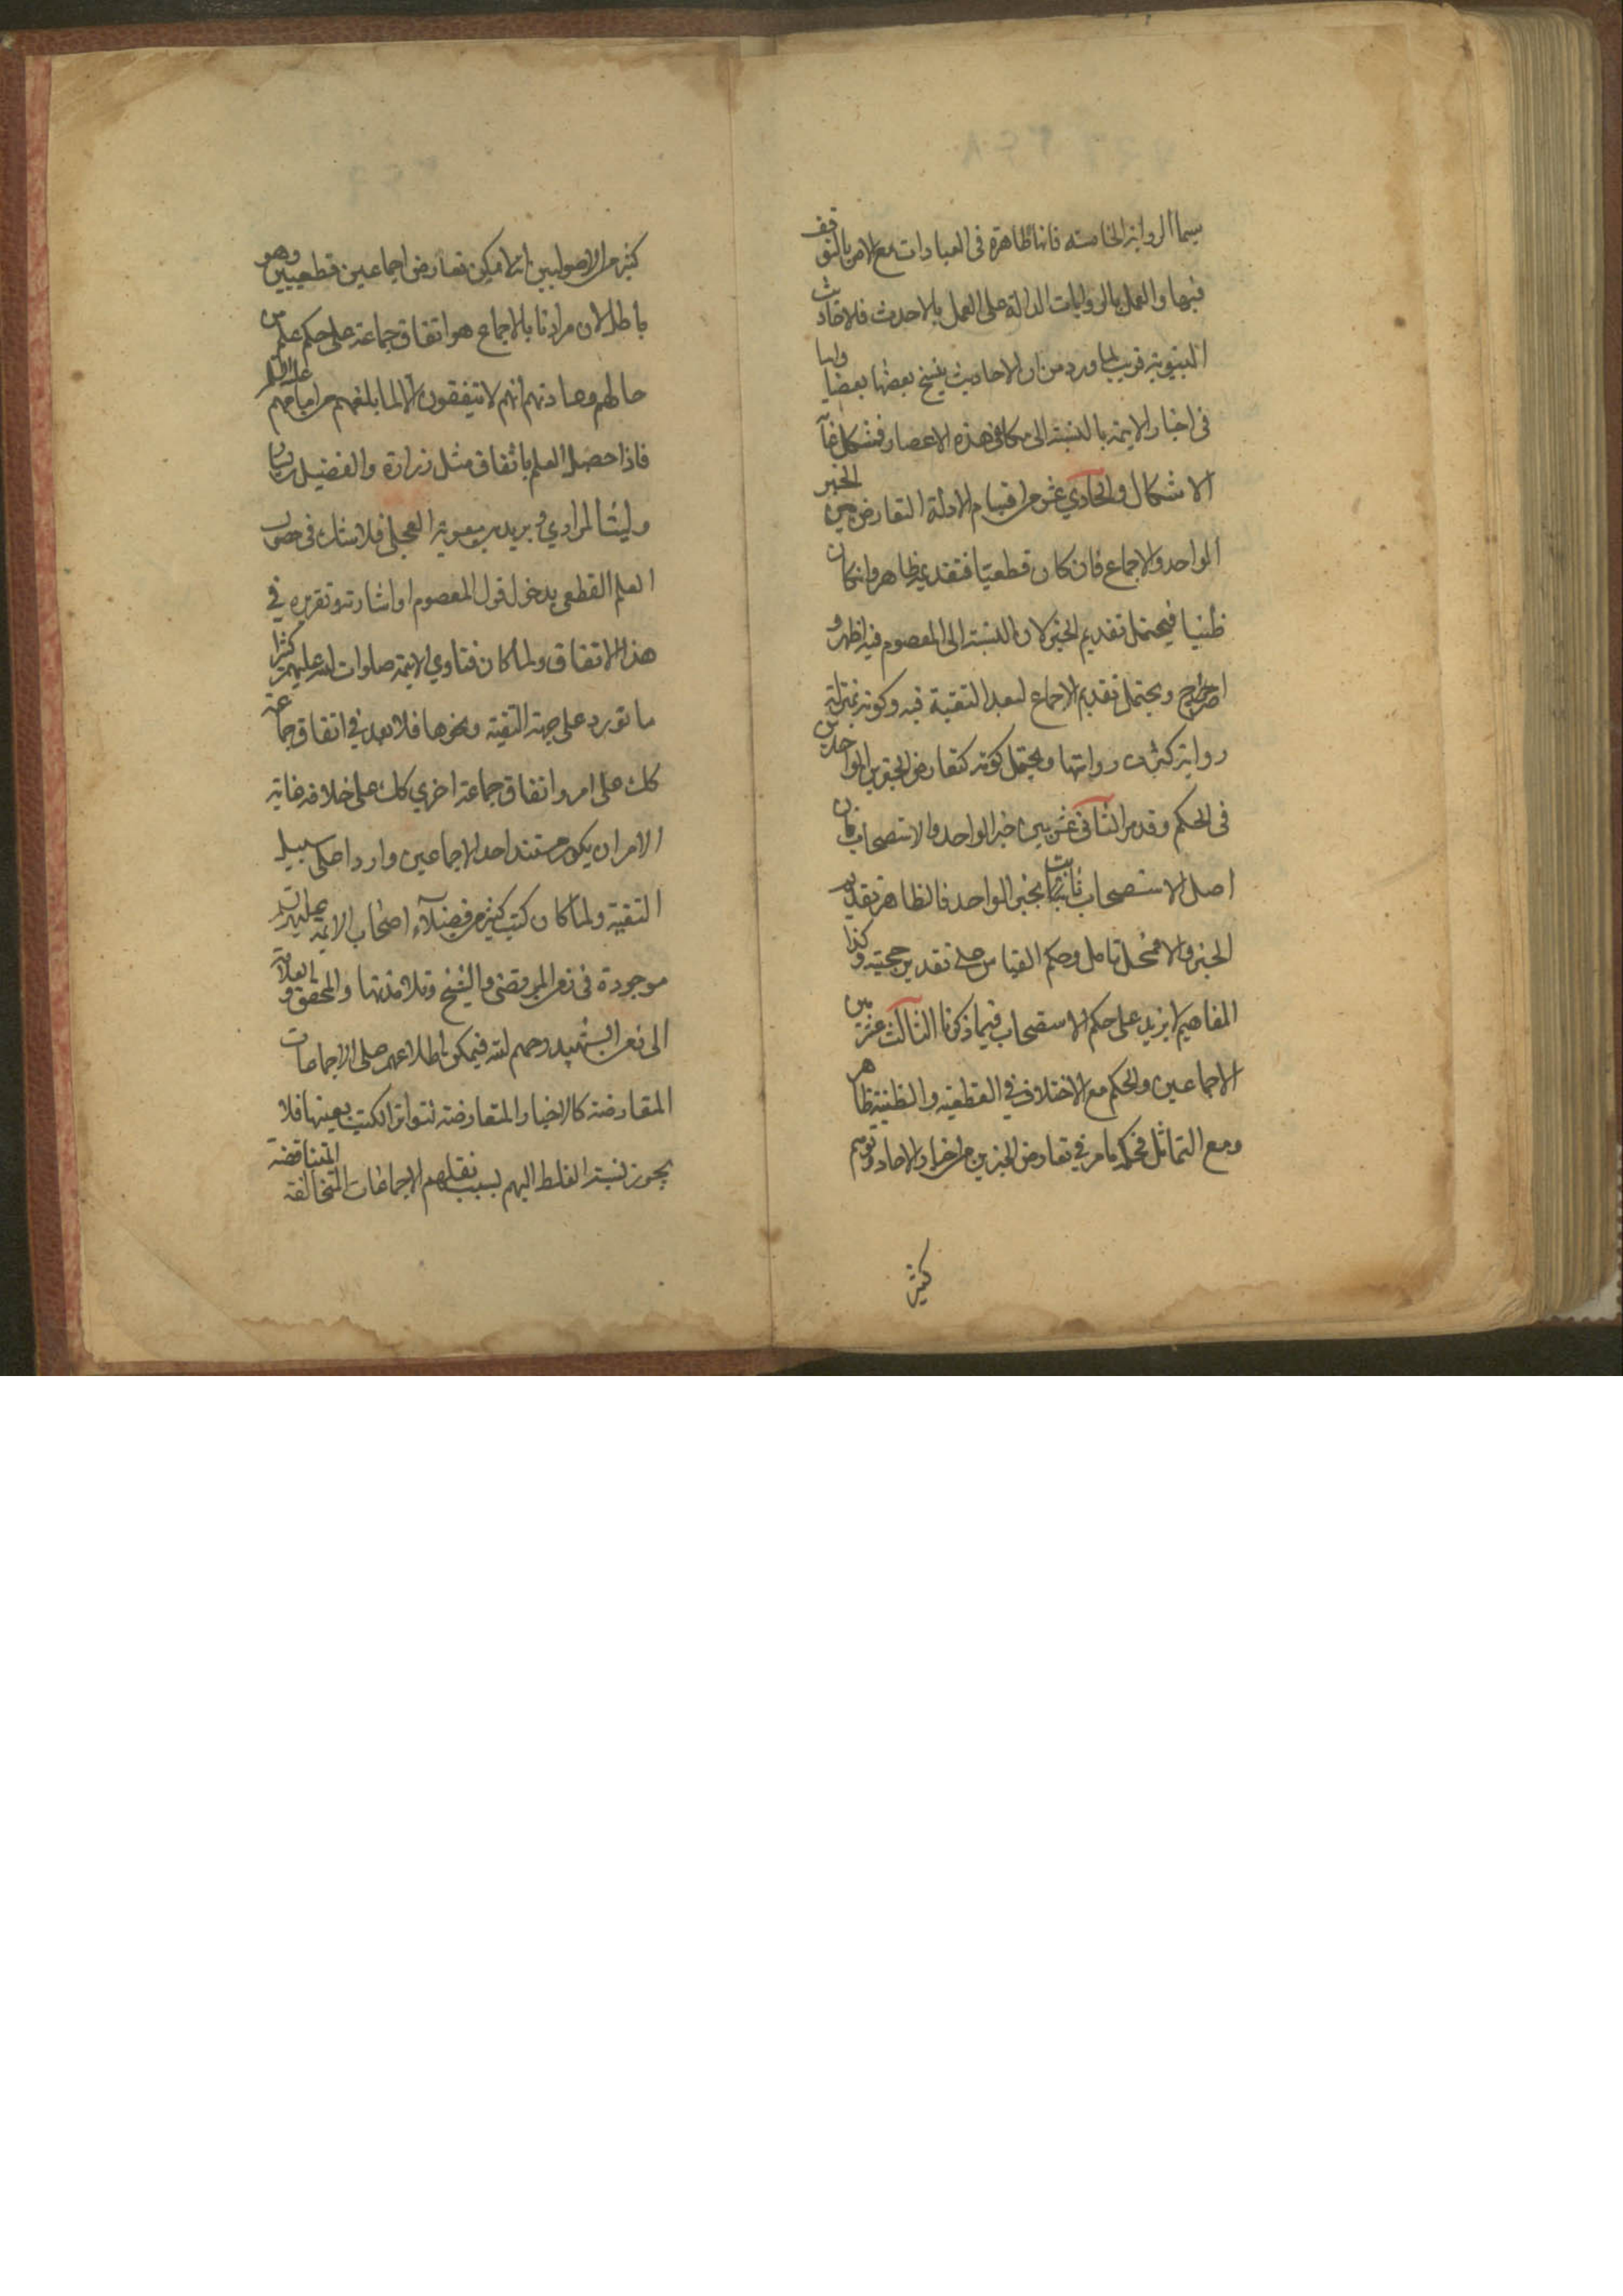 سيما الرواية الخامسة فانها ظاهرة في العبادات مع الامر بالتوقف
فيها والعمل بالروايات الدالة على العمل بالاحدث فلاحاديث
النبوية قريب لما ورد من ان الاحاديث ينسخ بعضها بعضا واما
في اخبار الايمة بالنسبة الى مكلفي هذه الاعصار فمشكل غاية
الاشكال والحادي عشر من اقسام الادلة التعارض بين الخبر
الواحد والاجماع فان كان قطعيا فتقديمه ظاهر وان كان
ظنيا فيحتمل تقديم الخبر لان النسبة الى المعصوم فيه اظهر و
اصرح ويحتمل تقديم الاجماع لبعد التقية فيه وكونه بمنزلة
رواية كثرت رواتها ويحتمل كونه كتعارض الخبرين الواحدين
في الحكم وقد مر الثاني عشر بين خبر الواحد والاستصحاب فان
اصل الاستصحاب ثابتا بخبر الواحد فالظاهر تقديم
الخبر والا فمحل تامل وحكم القياس على تقدير حجيته وكذا
المفاهيم لا يزيد على حكم الاستصحاب فيما ذكرنا الثالث عشر بين
الاجماعين والحكم مع الاختلاف في القطعية والظنية ظاهر
ومع التماثل فحكمه ما مر في تعارض الخبرين من اخبار الاحاد وتوهم
كثير
كثير من الاصوليين انه لا يمكن تعارض اجماعين قطعيين وهو
باطل لان مرادنا بالاجماع هو اتفاق جماعة على حكم علم من
حالهم وعادتهم انهم لا يتفقون الا لما بلغهم من امامهم عليه السلم
فاذا حصل العلم باتفاق مثل زرارة والفضيل بن يسار
وليث المرادي و بريد بن معوية العجلي فلا شك في حصول
العلم القطعي بدخول قول المعصوم او اشارته وتقريره في
هذا الاتفاق ولما كان فتاوي الايمة صلوات الله عليهم كثيرا
ما تورد على جهة التقية ونحوها فلا بعد في اتفاق جماعة
كك على امر واتفاق جماعة اخري كك على خلافه غاية
الامر ان يكون مستند احد الاجماعين واردا على سبيل
التقية ولما كان كتب كثير من فضلاء اصحاب الايمة عليهم السلم
موجودة في زمن المرتضى والشيخ وتلامذتهما والمحقق والعلامة
الى زمن الشهيد رحمهم الله فيمكن اطلاعهم على الاجماعات
المتعارضة كالاخبار المتعارضة لتواتر الكتب بعينها فلا
يجوز نسبة الغلط اليهم بسبب نقلهم الاجماعات المتخالفة المتناقضة